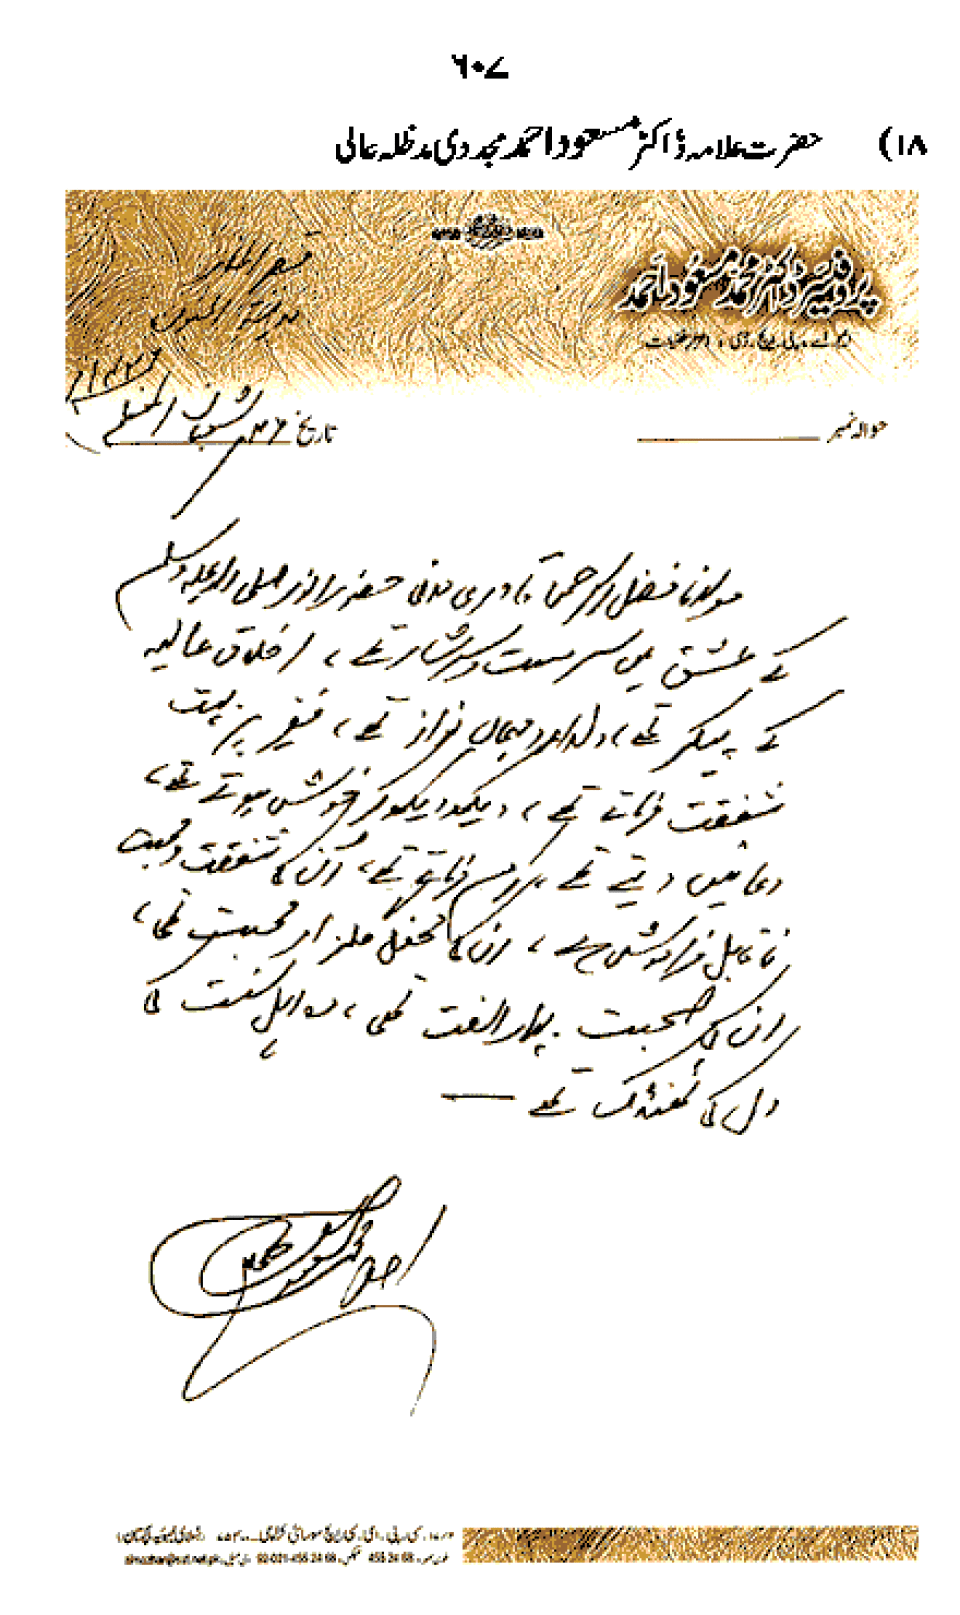 ۶۰۷
۱۸) حضرت علامہ ڈاکٹر مسعود احمد مجددی مدظلہ عالی
پروفیسر ڈاکٹر محمد مسعود احمد
ایم اے، پی ایچ ڈی،
حوالہ نمبر
تاریخ ۲۶ شعبان المعظم
مولانا فضل الرحمٰن قادری مدنی حضور انور صلی اللہ علیہ وسلم
کے عشق میں سرمست و سرشار تھے، اخلاق عالیہ
کے پیکر تھے، دلدار و مہمان نواز تھے، فقیر پر بہت
شفقت فرماتے تھے، دیکھ دیکھ کر خوش ہوتے تھے،
دعائیں دیتے تھے، کرم فرماتے تھے، ان کی شفقت و محبت
ناقابل فراموش ہے، ان کی محفل گلزار محبت تھی،
ان کی صحبت بہار الفت تھی، وہ اہل سنت کے
دل کی ٹھنڈک تھے —
احقر محمد مسعود